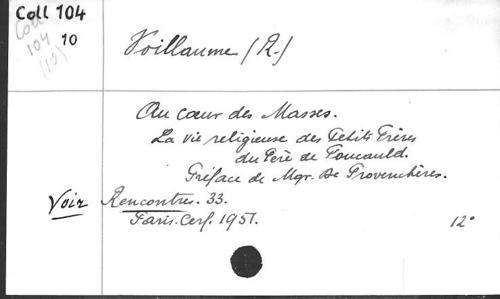 Coll 104
Coll
104
10
(10)
Voillaume (R.)
Au cœur des Masses.
La vie religieuse des Petits Frères
du Père de Foucauld.
Préface de Mgr. de Provenchères.
Voir Rencontres. 33.
Paris. Cerf. 1951. 12°